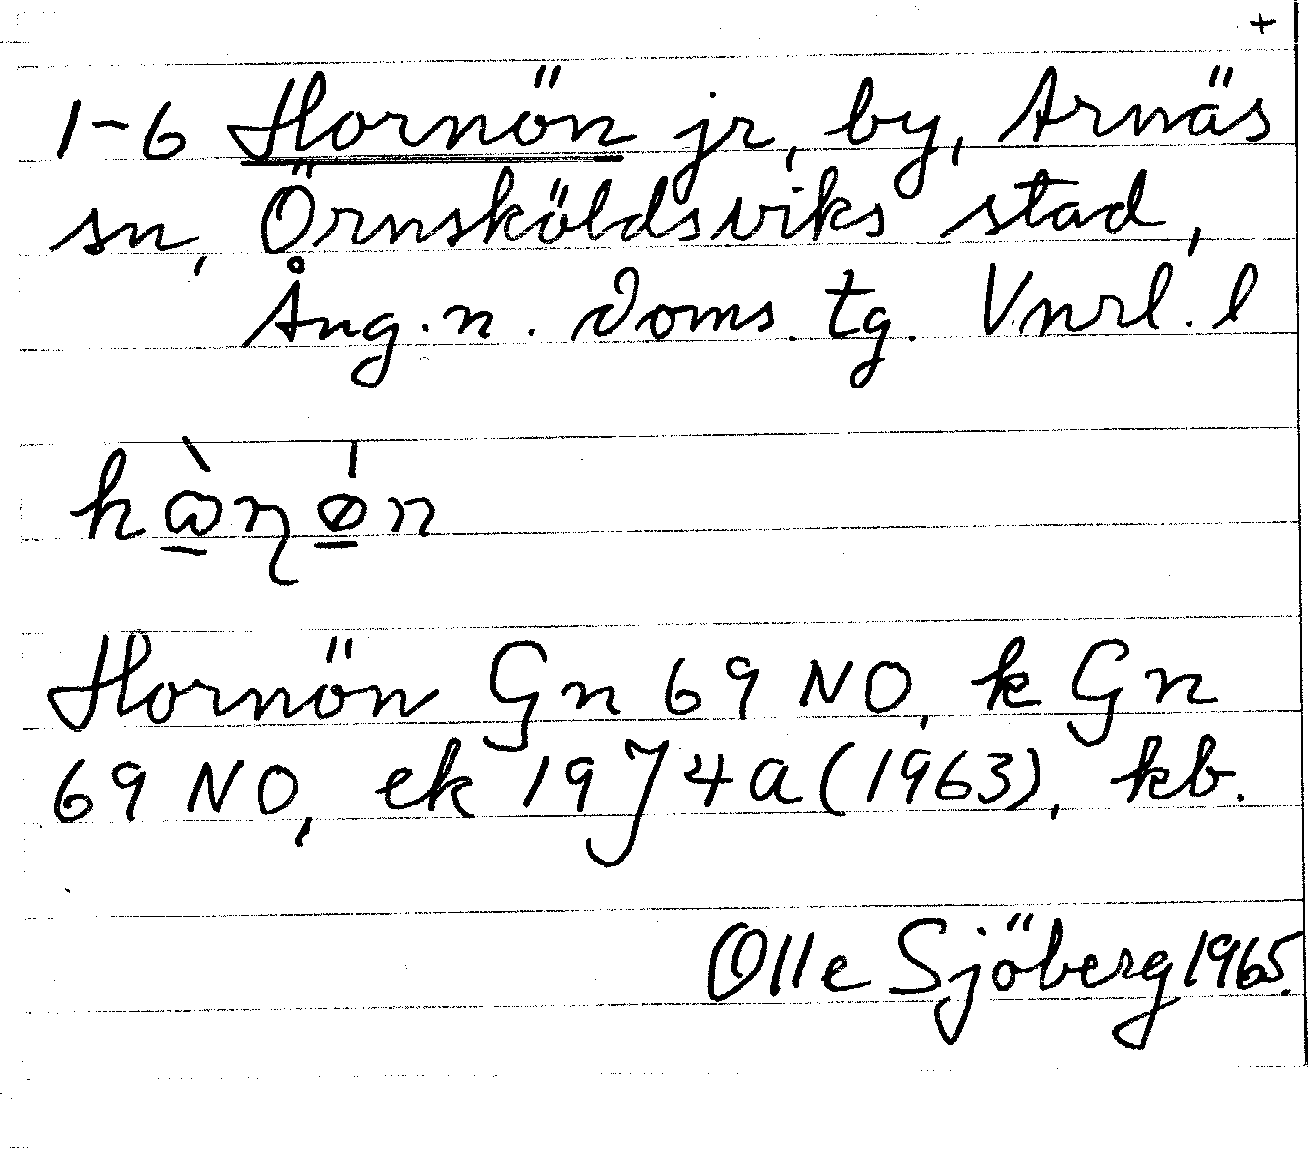 +
1-6 Hornön jr, by, Arnäs
sn, Örnsköldsviks stad,
Ång. n. doms. tg. Vnrl. l
Hornön Gn 69 NO, k Gn
69 NO, ek 19J4a (1963), kb.
Olle Sjöberg 1965.